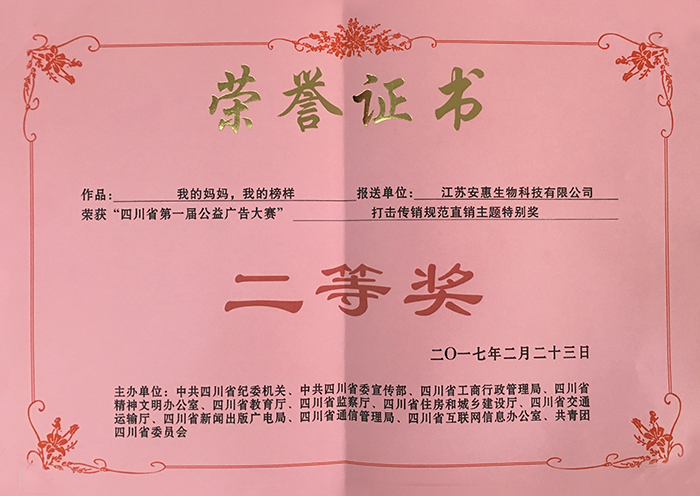 荣誉证书
作品: 我的妈妈，我的榜样 报送单位: 江苏安惠生物科技有限公司
荣获“四川省第一届公益广告大赛” 打击传销规范直销主题特别奖
二等奖
二〇一七年二月二十三日
主办单位：中共四川省纪委机关、中共四川省委宣传部、四川省工商行政管理局、四川省
精神文明办公室、四川省教育厅、四川省监察厅、四川省住房和城乡建设厅、四川省交通
运输厅、四川省新闻出版广电局、四川省通信管理局、四川省互联网信息办公室、共青团
四川省委员会